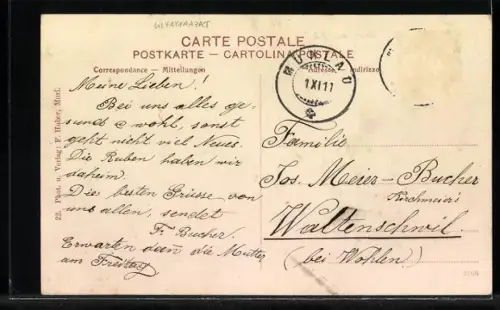 CARTE POSTALE
POSTKARTE - CARTOLINA POSTALE
Correspondance — Mitteilungen
Adresse Indirizzo
22. Phot. u. Verlag: F. Huber, Muri.
Meine Lieben!
Bei uns alles ge-
sund & wohl, sonst
geht nicht viel Neues.
Die Ruben haben wir
daheim.
Die besten Grüsse von
uns allen, sendet
Fr. Bucher.
Erwarten dann die Mutter
am Freitag
1 XI 17
Familie
Jos. Meier-Bucher
Kirchmeier's
Waltenschwil
(bei Wohlen)